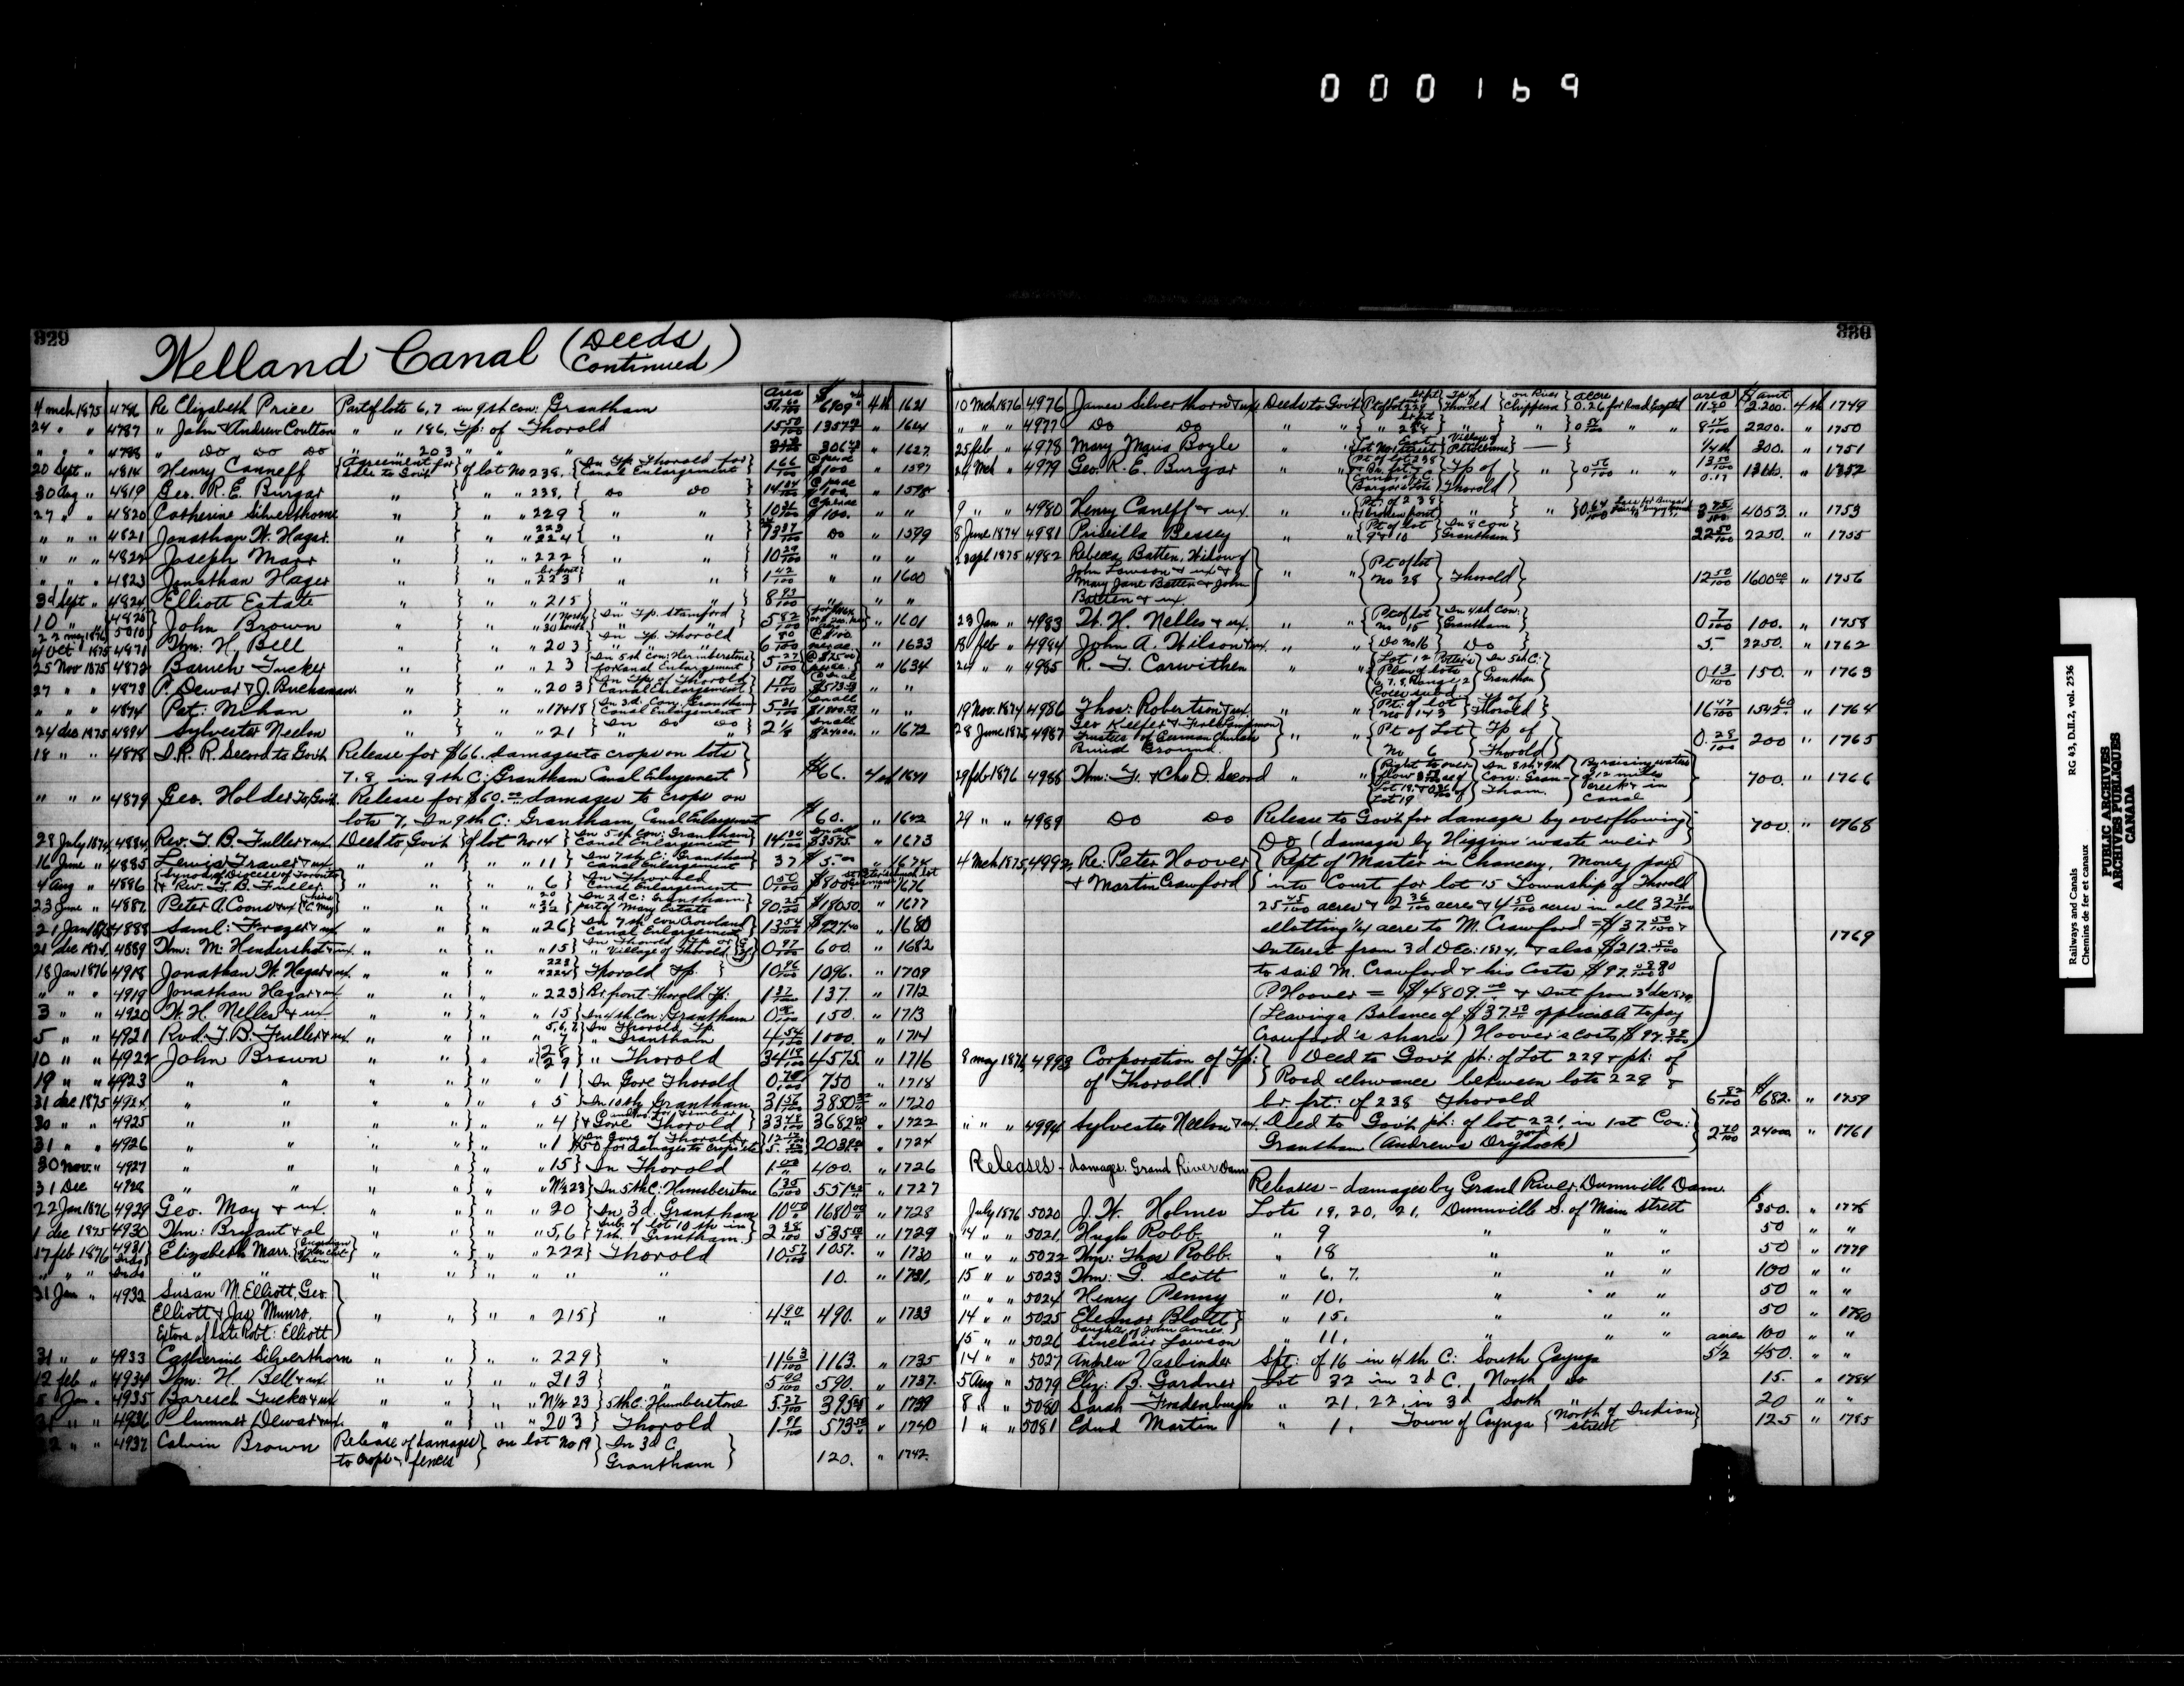 000169
329
Welland Canal (Deeds Continued)
area $
4 mch 1875 4786 Re Elizabeth Price Part of lots 6, 7 in 9th con: Grantham 6109 4th 1621
24 " " 4787 " John & Andrew Coulton " " 186, Tp: of Thorold 15 50/100 1357 " 1624
" " " 4788 " Do Do Do " " 203 " " " 306 " 1627
20 Sept " 4814 Henry Canneff {Agreement for sale to Govt} of lot No 238, {In Tp Thorold for Canal Enlargement} 1 66/100 $100 " 1597
30 Aug " 4819 Geo. R. E. Burgar " } " " 238, { Do Do } 14 $100 " 1598
27 " " 4820 Catherine Silverthorne " } " " 229 " " } 10 $100. " "
" " " 4821 Jonathan W. Hagar " } " " 223 224 " " } Do " 1599
" " " 4822 Joseph Marr " } " " 222 " " } 10 29/100 " " "
" " " 4823 Jonathan Hager " } " br front 223 " " } 1 42/100 " " 1600
3d Sept " 4824 Elliott Estate " } " " 215 " " } 8 93/100 " " "
10 " " 4825 22 may 1876 5010 } John Brown " } " 11 North 30 South {In Tp. Stamford } 5 82/100 " 1601
4 Oct 1875 4871 Wm: H, Bell " } " " 203 {In Tp. Thorold } 6 80/100 @ $100. " 1633
25 Nov 1875 4872 Baruch Tucker " } " " 23 {In 5th con: Humberstone for Canal Enlargement} 5 27/100 " 1634
27 " " 4873 P. Dewar & J. Buchanan " } " " 203 {In Tp. of Thorold Canal Enlargement} $573 " "
" " " 4874 Pat: Mehan " } " " 17 & 18 {In 3d. Con: Grantham Canal Enlargement} 5 31/100 " "
24 dec 1875 4894 Sylvester Neelon " } " " 21 {In Do Do } 2 1/8 $2400. " 1672
18 " " 4878 I. R. R. Secord to Govt Release for $66. damages to crops on lots
7, 8, in 9th C: Grantham Canal Enlargement } $66. 4th 1641
" " " 4879 Geo. Holder to Govt. Release for $60.00 damages to crops on
lots 7, In 9th C: Grantham, Canal Enlargement $60. " 1642
28 July 1874 4884 Rev. T. B. Fuller & ux Deed to Govt {of lot No 14 {In 5th con: Grantham Canal Enlargement} 14 30/100 $3575. " 1673
16 June " 4885 Lewis Traver & ux " " } " " 11 {In 7th C: Grantham Canal Enlargement} 37 $5.00 " 1674
4 Aug " 4886 {Synod of Diocese of Toronto & Rev. T. B. Fuller. } " " } " " 6 {In Thorold Canal Enlargement} 0 50/100 $800 " 1676
23 June " 4887 Peter A. Coons & ux " " } " {In 2d C: Grantham part of Mary Estate} 90 25/100 $18050. " 1677
21 Jan 1875 4888 Saml: Frazer & ux " " } " " 26 {In 7th con Crowland Canal Enlargement} 12 54/100 " 1680
21 dec 1874 4889 Wm: M. Hendershot & ux " " } " " 15 {In Thorold Tp or Village of Thorold} 0 97/100 600. " 1682
18 Jan 1876 4918 Jonathan W. Hagar & ux " " } " 223 224 } Thorold Tp. } 10 96/100 1096. " 1709
" " " 4919 Jonathan Hagar & ux " " } " " 223 } Br front Thorold Tp: 1 37/100 137. " 1712
3 " " 4920 W. H. Nelles & ux " " } " " 15 } In 4th con: Grantham 150. " 1713
5 " " 4921 Rvd. T. B. Fuller & ux " " } " 5, 6, 7 7 } In Thorold Tp. " Grantham 4 54/100 1000. " 1714
10 " " 4922 John Brown " " } " " {28 29 } " Thorold 34 4575. " 1716
19 " " 4923 " " " " } " " 1 } In Gore Thorold 750 " 1718
31 dec 1875 4924 " " " " } " " 5 } In 10th Grantham 31 56/100 3850 " 1720
30 " " 4925 " " " " } " " 4 } & Gore Thorold 33 3682 " 1722
31 " " 4926 " " " " } " " 1 } In Gore of Thorold & $50 for damages to crops &c 2030 " 1724
30 Nov. " 4927 " " " " } " " 15 } In Thorold 1 00/100 400. " 1726
31 Dec 4928 " " " " } " " N 1/2 23 } In 5th C: Humberstone 6 35/100 551 " 1727
22 Jan 1876 4929 Geo. May & ux. " " } " " 20 } In 3d. Grantham 10 00 1680 " 1728
1 dec 1875 4930 Wm: Bryant & al " " } " " 5, 6 } Sub. of lot 10 in 7th. Grantham. 2 38/100 535 " 1729
17 feb 1876 4931 Elizabeth Marr. {Guardian of her children " " } " " 222 } Thorold 10 57/100 1057. " 1730
" " " " " " " } " " " " 10. " 1731.
31 Jan " 4932 Susan M. Elliott, Geo.
Elliott & Jas Munro, } " " } " " 215 } " 4 90 490. " 1733
Extors of late Robt: Elliott
31 " " 4933 Catherine Silverthorn " " } " " 229 } " 11 63/100 1163. " 1735
12 feb " 4934 Wm: H. Bell & ux " " } " " 213 } " 5 90/100 590. " 1737.
5 Jan " 4935 Baruch Tucker & ux " " } " " N 1/2 23 } 5th C. Humberstone 5 27/100 395 " 1739
31 " " 4936 Plummer Dewar & ux. " " } " " 203 } Thorold 1 91/100 573 " 1740
" " 4937 Calvin Brown Release of damages to crops & fences } on lot No 19 {In 3d C. Grantham } 120. " 1742.
330
area $ amt
10 Mch 1876 4976 James Silverthorn & ux Deeds to Govt {Pt of lot 229 } Tp of Thorold } on River Chippewa } acre 0.26 for Road Excepted 2.200. 4th 1749
" " " 4977 Do Do " " " " } " } " 2200. " 1750
25 feb " 4978 Mary Maria Boyle " " {Lot No 1 East Street } Village of Petersburne } — 1/4th 300. " 1751
24 Mch " 4979 Geo. R. E. Burgar " " {Pt of lot 238 } Tp of Thorold } " } 0 56/100 " " 12 50/100 0.17 " 1752
9 " " 4980 Henry Caneff & ux. " " {Pt: of 238 & broken front } " } " } 0 64/100 3 75/100 4053. " 1753
8 June 1874 4981 Priscilla Bessey " " {Pt of lot 9 & 10 } In 8 Con Grantham } 22 50/100 2250. " 1755
23 apl 1875 4982 Rebecca Batten, Widow of
John Lawson & ux &
Mary Jane Batten & John
Batten & ux } " " {Pt of lot No 28 } Thorold } 12 50/100 1600 00 " 1756
23 Jan " 4983 W. H. Nelles & ux. " " {Pt of lot no 15 } In 4th Con: Grantham } 0 7/100 100. " 1758
18 feb " 4984 John A. Wilson & ux. " " {Do No 16 } Do } 5. 2250. " 1762
24 " " 4985 R. T. Carwithen " " {Lot 12 Potter's Plan of lots 6, 7, 8, Range 2 } In 5th C: Grantham } 0 13/100 150. " 1763
19 Nov. 1874 4986 Thos: Robertson & ux. " " {Pt: of lot No 143 } Tp of Thorold } 16 47/100 1542 60 " 1764
28 June 1875 4987 Geo Keefer & Trustees of German Church Burial Ground. } " " {Pt of Lot no 6 } Tp of Thorold } 0.28/100 200 " 1765
29 feb 1876 4988 Wm: G. & Chs D. Secord " " {Right to overflow Lot 18 & Lot 19 } In 8th & 9th Con: Grantham. } By raising waters of 12 miles creek & in Canal } 700. " 1766
29 " " 4989 Do Do Release to Govt for damages by overflowing
Do (damages by Higgins' waste weir } 700. " 1768
4 Mch 1875, 4992, Re: Peter Hoover & Martin Crawford } Rept of Master in Chancery, Money paid
into Court for lot 15 Township of Thorold
25 45/100 acres & 2 36/100 acres & 4 50/100 acres in all 32 31/100
allotting 1/4 acre to M. Crawford = $37. 50/100 &
Interest from 3d Dec: 1874, & also $212. 50/100
to said M. Crawford & his Costs $97.
P. Hoover = $4809. 00 & Int from 3d dec 1874
(Leaving a Balance of $37 50 applicable to pay
Crawford's shares) Hoover's costs $97. } 1769
8 may 1876 4993 Corporation of Tp: of Thorold. } Deed to Govt pt: of Lot 229 & pt: of
Road allowance between lots 229 &
br. frt: of 238 Thorold 6 82/100 $682. " 1759
" " " 4994 Sylvester Neelon & ux. Deed to Govt pt: of lot 221, in 1st Con:
Grantham (Andrews Dry dock) 2 70/100 24000 " 1761
Releases - damages Grand River Dam
Releases - damages by Grand River Dunnville Dam.
July 1876 5020 J. W. Holmes Lots 19, 20, 21, Dunnville S. of Main street $350. " 1778
14 " " 5021 Hugh Robb. " 9 " " " 50 " "
" " " 5022 Wm: Thos Robb. " 18 " " " 50 " 1779
15 " " 5023 Wm: G. Scott " 6, 7. " " " 100 " "
" " " 5024 Henry Penny " 10, " " " 50 " "
14 " " 5025 Eleanor Blott Daughter of John Ames. } " 15, " " " 50 " 1780
15 " " 5026 Sinclair Lawson " 11, " " " acres 100 " "
14 " " 5027 Andrew Vasbinder Spt: of 16 in 4th C: South Cayuga 5 1/2 450. " "
5 Aug " 5079 Eliz: B. Gardner Lot 32 in 2d C, North Do 15. " 1784
8 " " 5080 Sarah Fradenburgh " 21, 22, in 3d South " 20 " "
1 " " 5081 Edwd Martin " 1, Town of Cayuga {North of Indian street } 125 " 1785
Railways and Canals
Chemins de fer et canaux
RG 43, D.II.2, vol. 2536
PUBLIC ARCHIVES
ARCHIVES PUBLIQUES
CANADA